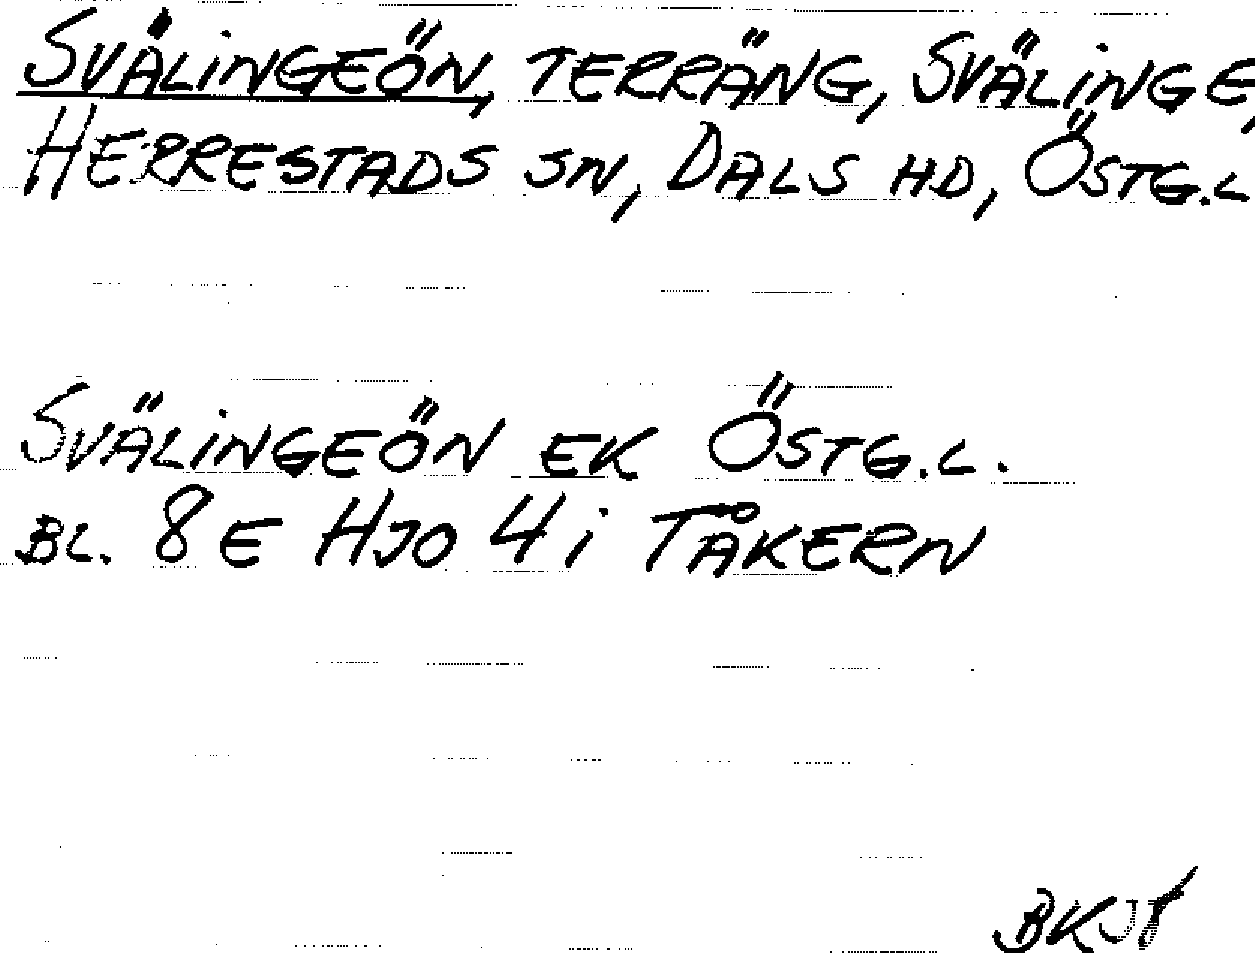 SVÄLINGEÖN, TERRÄNG, SVÄLINGE,
HERRESTADS SN, DALS HD, ÖSTG.L
SVÄLINGEÖN EK ÖSTG.L.
BL. 8 E HJO 4 i TÅKERN